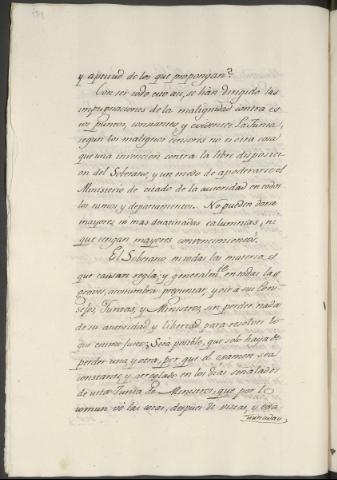 y aptitud de los que propongan?
Con ser todo esto asi, se han dirigido las
impugnaciones de la malignidad contra es
tos puntos, constantes y evidentes. La Junta,
segun los malignos censores no es otra cosa
que una invencion contra la libre disposici
on del Soberano, y un medio de apoderarse el
Ministerio de estado de la autoridad en todos
los ramos, y departamentos. No pueden darse
mayores ni mas desatinadas calumnias, ni
que tengan mayores contradicciones.
El Soberano en todas las materias,
que causan regla, y generalmte en todas las
graves, acostumbra preguntar, y oir á sus Con
sejos, Juntas, y Ministros, sin perder nada
de su autoridad y libertad para resolver lo
que estime justo; Será posible, que solo haya de
perder una y otra, por que el examen sea
constante y arreglado en los dias señalados
de una Junta de Ministros, que por lo
comun vé las cosas, despues de vistas, y exa
minadas